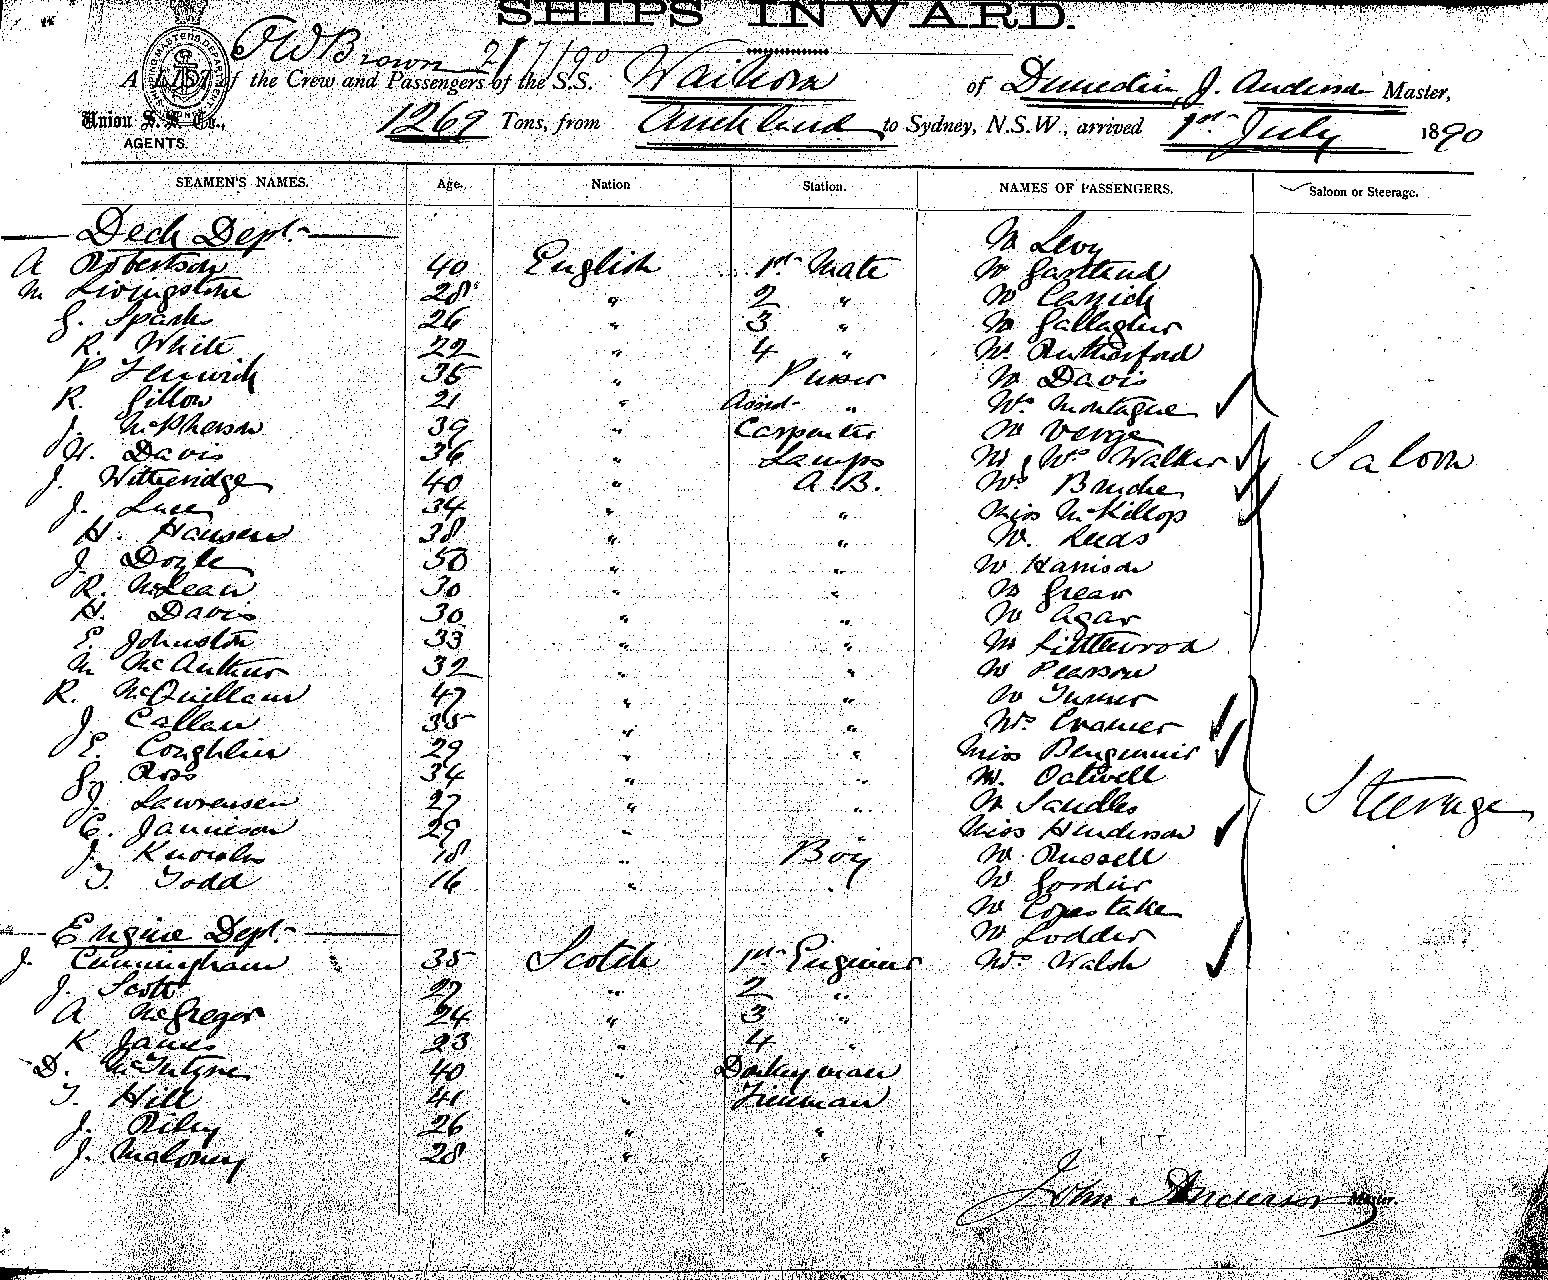 SHIPS INWARD.
J W Brown 2/7/90
A LIST of the Crew and Passengers of the S.S. Waihora of Dunedin, J. Anderson Master,
Union S.S. Co., AGENTS.
1269 Tons, from Auckland to Sydney, N.S.W., arrived 1st July 1890
SEAMEN'S NAMES. Age. Nation Station. NAMES OF PASSENGERS. Saloon or Steerage.
Deck Dept. Mr Levy
A Robertson 40 English 1st Mate Mr Gartland
M Livingstone 28 " 2 " Mr Carrick
G. Sparks 26 " 3 " Mr Gallagher
R. White 22 " 4 " Mr Rutherford
P Fenwick 35 " Purser Mr Davis
R. Gillow 21 " Assist " Mrs Montague
J. McPherson 39 " Carpenter Mr Verge
H. Davis 36 " Lamps Mr & Mrs Walker Saloon
J. Witheridge 40 " A.B. Mrs
J. Luce 34 " " Miss McKillop
H. Hansen 38 " " Mr. Leeds
J. Doyle 50 " " Mr Harrison
R. McLean 30 " " Mr Grear
H. Davis 30 " " Mr Agar
E. Johnston 33 " " Mr Littlewood
M McArthur 32 " " Mr Pearson
R. McQuillan 47 " " Mr Turner
J Callan 35 " " Mrs Cramer
E. Coughlin 29 " " Miss Benjamin
Gg. Ross 34 " " Mr. Oatwell
J. Lawrensen 27 " " Mr Sandles Steerage
C. Jamieson 29 " " Miss Henderson
J. Knowles 18 " Boy Mr Russell
T. Todd 16 " " Mr Gordier
Mr Copestake
Engine Dept. Mr Lodder
J. Cunningham 35 Scotch 1st Engineer Mrs Walsh
J. Scott 27 " 2 "
A McGregor 24 " 3 "
K James 23 " 4 "
D. McIntyre 40 " Donkeyman
T. Hill 41 " Fireman
J. Riley 26 " "
J. Maloney 28 " "
John Anderson Master.